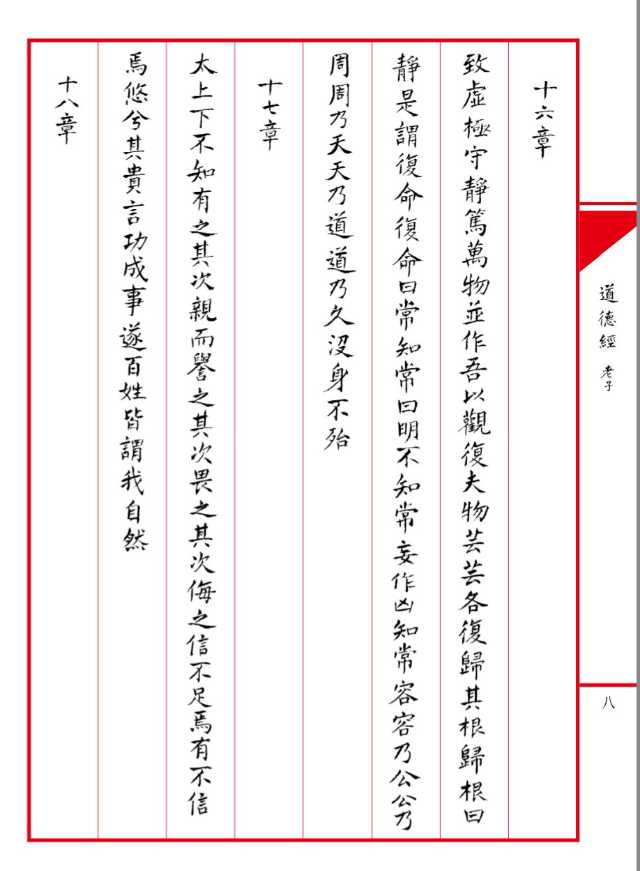 十六章
致虛極守靜篤萬物並作吾以觀復夫物芸芸各復歸其根歸根曰
靜是謂復命復命曰常知常曰明不知常妄作凶知常容容乃公公乃
周周乃天天乃道道乃久沒身不殆
十七章
太上下不知有之其次親而譽之其次畏之其次侮之信不足焉有不信
焉悠兮其貴言功成事遂百姓皆謂我自然
十八章
道德經 老子
八